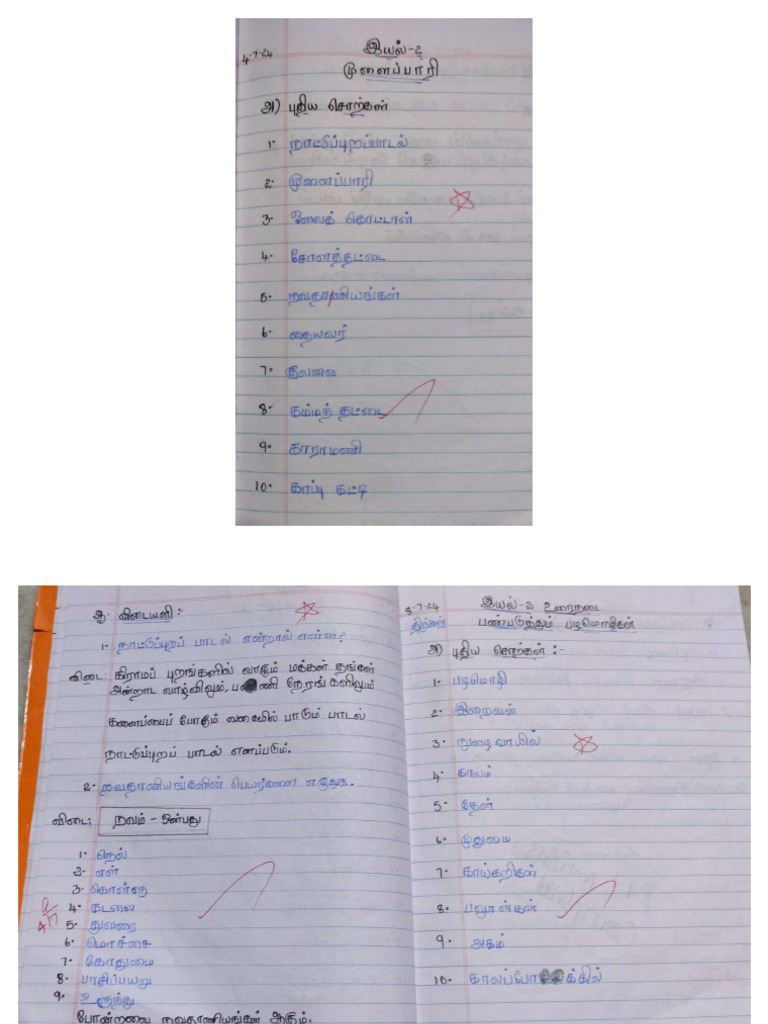 4.7.24 இயல்-2
முளைப்பாரி
அ) புதிய சொற்கள்
1. நாட்டுப்புறப்பாடல்
2. முளைப்பாரி
3. ஓலைக் கொட்டான்
4. சோளத்தட்டை
5. நவதானியங்கள்
6. தையலர்
7. குவளை
8. கம்மந் தட்டை
9. காராமணி
10. காப்பு கட்டி
ஆ. விடையளி :-
1. நாட்டுப்புறப் பாடல் என்றால் என்ன?
விடை: கிராமப் புறங்களில் வாழும் மக்கள் தங்கள்
அன்றாட வாழ்விலும், பணி நேரங்களிலும்
களைப்பைப் போக்கும் வகையில் பாடும் பாடல்
நாட்டுப்புறப் பாடல் எனப்படும்.
2. நவதானியங்களின் பெயர்களை எழுதுக.
விடை: நவம் - ஒன்பது
1. நெல்
2. எள்
3. கொள்ளு
4. கடலை
5. துவரை
6. மொச்சை
7. கோதுமை
8. பாசிப்பயறு
9. உளுந்து
போன்றவை நவதானியங்கள் ஆகும்.
8.7.24 இயல்-2 உரைநடை
திங்கள் பண்படுத்தும் பழமொழிகள்
அ) புதிய சொற்கள் :-
1. பழமொழி
2. இறைவன்
3. நுழைவாயில்
4. காலம்
5. தேன்
6. முதுமை
7. காய்கறிகள்
8. பலூன்கள்
9. அகம்
10. காலப்போக்கில்